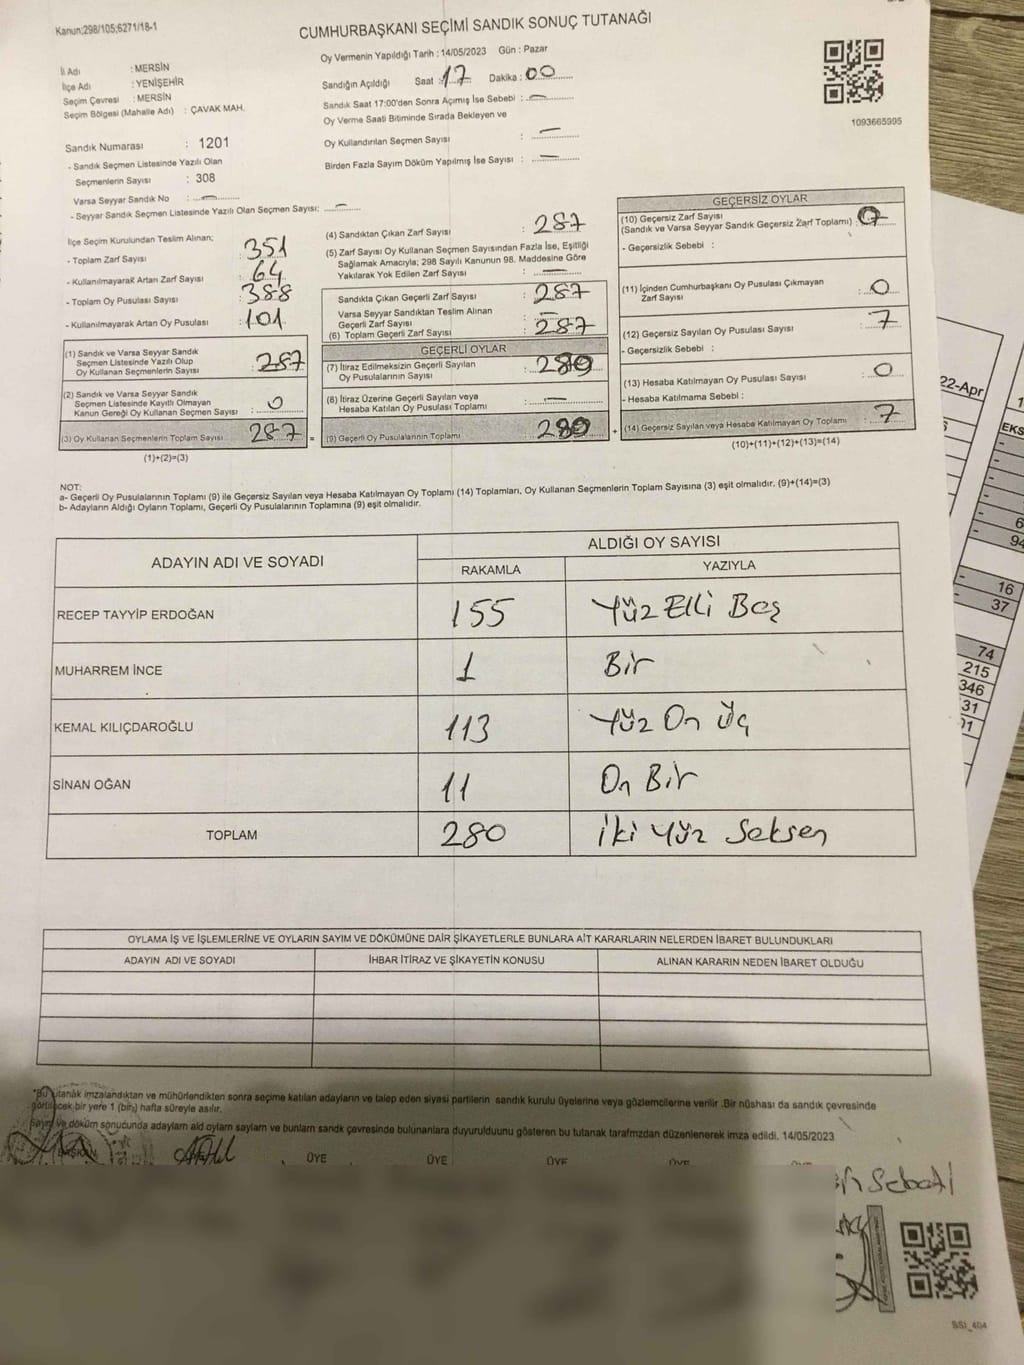 Kanun;298/105;6271/18-1
CUMHURBAŞKANI SEÇİMİ SANDIK SONUÇ TUTANAĞI
Oy Vermenin Yapıldığı Tarih : 14/05/2023 Gün : Pazar
İl Adı : MERSİN
İlçe Adı : YENİŞEHİR
Seçim Çevresi : MERSİN
Seçim Bölgesi (Mahalle Adı) : ÇAVAK MAH.
Sandık Numarası : 1201
- Sandık Seçmen Listesinde Yazılı Olan
Seçmenlerin Sayısı : 308
Varsa Seyyar Sandık No : —
- Seyyar Sandık Seçmen Listesinde Yazılı Olan Seçmen Sayısı: —
Sandığın Açıldığı Saat : 17 Dakika : 00
Sandık Saat 17:00'den Sonra Açımış İse Sebebi : —
Oy Verme Saati Bitiminde Sırada Bekleyen ve
Oy Kullandırılan Seçmen Sayısı : —
Birden Fazla Sayım Döküm Yapılmış İse Sayısı : —
1093665995
İlçe Seçim Kurulundan Teslim Alınan;
- Toplam Zarf Sayısı : 351
- Kullanılmayarak Artan Zarf Sayısı : 64
- Toplam Oy Pusulası Sayısı : 388
- Kullanılmayarak Artan Oy Pusulası : 101
(1) Sandık ve Varsa Seyyar Sandık
Seçmen Listesinde Yazılı Olup
Oy Kullanan Seçmenlerin Sayısı : 287
(2) Sandık ve Varsa Seyyar Sandık
Seçmen Listesinde Kayıtlı Olmayan
Kanun Gereği Oy Kullanan Seçmen Sayısı : 0
(3) Oy Kullanan Seçmenlerin Toplam Sayısı : 287 =
(1)+(2)=(3)
(4) Sandıktan Çıkan Zarf Sayısı : 287
(5) Zarf Sayısı Oy Kullanan Seçmen Sayısından Fazla İse, Eşitliği
Sağlamak Amacıyla; 298 Sayılı Kanunun 98. Maddesine Göre
Yakılarak Yok Edilen Zarf Sayısı : —
Sandıkta Çıkan Geçerli Zarf Sayısı : 287
Varsa Seyyar Sandıktan Teslim Alınan
Geçerli Zarf Sayısı : —
(6) Toplam Geçerli Zarf Sayısı : 287
GEÇERLİ OYLAR
(7) İtiraz Edilmeksizin Geçerli Sayılan
Oy Pusulalarının Sayısı : 280
(8) İtiraz Üzerine Geçerli Sayılan veya
Hesaba Katılan Oy Pusulası Toplamı : —
(9) Geçerli Oy Pusulalarının Toplamı : 280 +
GEÇERSİZ OYLAR
(10) Geçersiz Zarf Sayısı
(Sandık ve Varsa Seyyar Sandık Geçersiz Zarf Toplamı) : 0
- Geçersizlik Sebebi :
(11) İçinden Cumhurbaşkanı Oy Pusulası Çıkmayan
Zarf Sayısı : 0
(12) Geçersiz Sayılan Oy Pusulası Sayısı : 7
- Geçersizlik Sebebi :
(13) Hesaba Katılmayan Oy Pusulası Sayısı : 0
- Hesaba Katılmama Sebebi :
(14) Geçersiz Sayılan veya Hesaba Katılmayan Oy Toplamı : 7
(10)+(11)+(12)+(13)=(14)
NOT:
a- Geçerli Oy Pusulalarının Toplamı (9) ile Geçersiz Sayılan veya Hesaba Katılmayan Oy Toplamı (14) Toplamları, Oy Kullanan Seçmenlerin Toplam Sayısına (3) eşit olmalıdır. (9)+(14)=(3)
b- Adayların Aldığı Oyların Toplamı, Geçerli Oy Pusulalarının Toplamına (9) eşit olmalıdır.
ADAYIN ADI VE SOYADI
ALDIĞI OY SAYISI
RAKAMLA YAZIYLA
RECEP TAYYİP ERDOĞAN 155 Yüz Elli Beş
MUHARREM İNCE 1 Bir
KEMAL KILIÇDAROĞLU 113 Yüz On Üç
SİNAN OĞAN 11 On Bir
TOPLAM 280 İki Yüz Seksen
OYLAMA İŞ VE İŞLEMLERİNE VE OYLARIN SAYIM VE DÖKÜMÜNE DAİR ŞİKAYETLERLE BUNLARA AİT KARARLARIN NELERDEN İBARET BULUNDUKLARI
ADAYIN ADI VE SOYADI İHBAR İTİRAZ VE ŞİKAYETİN KONUSU ALINAN KARARIN NEDEN İBARET OLDUĞU
*Bu tutanak imzalandıktan ve mühürlendikten sonra seçime katılan adayların ve talep eden siyasi partilerin sandık kurulu üyelerine veya gözlemcilerine verilir .Bir nüshası da sandık çevresinde
görülecek bir yere 1 (bir) hafta süreyle asılır.
Sayım ve döküm sonucunda adayların ald oyların sayların ve bunların sandk çevresinde bulunanlara duyurulduunu gösteren bu tutanak tarafmzdan düzenlenerek imza edildi. 14/05/2023
BAŞKAN ÜYE ÜYE ÜYE ÜYE
SSI_404
22-Apr
EKS
94
16
37
74
215
346
31